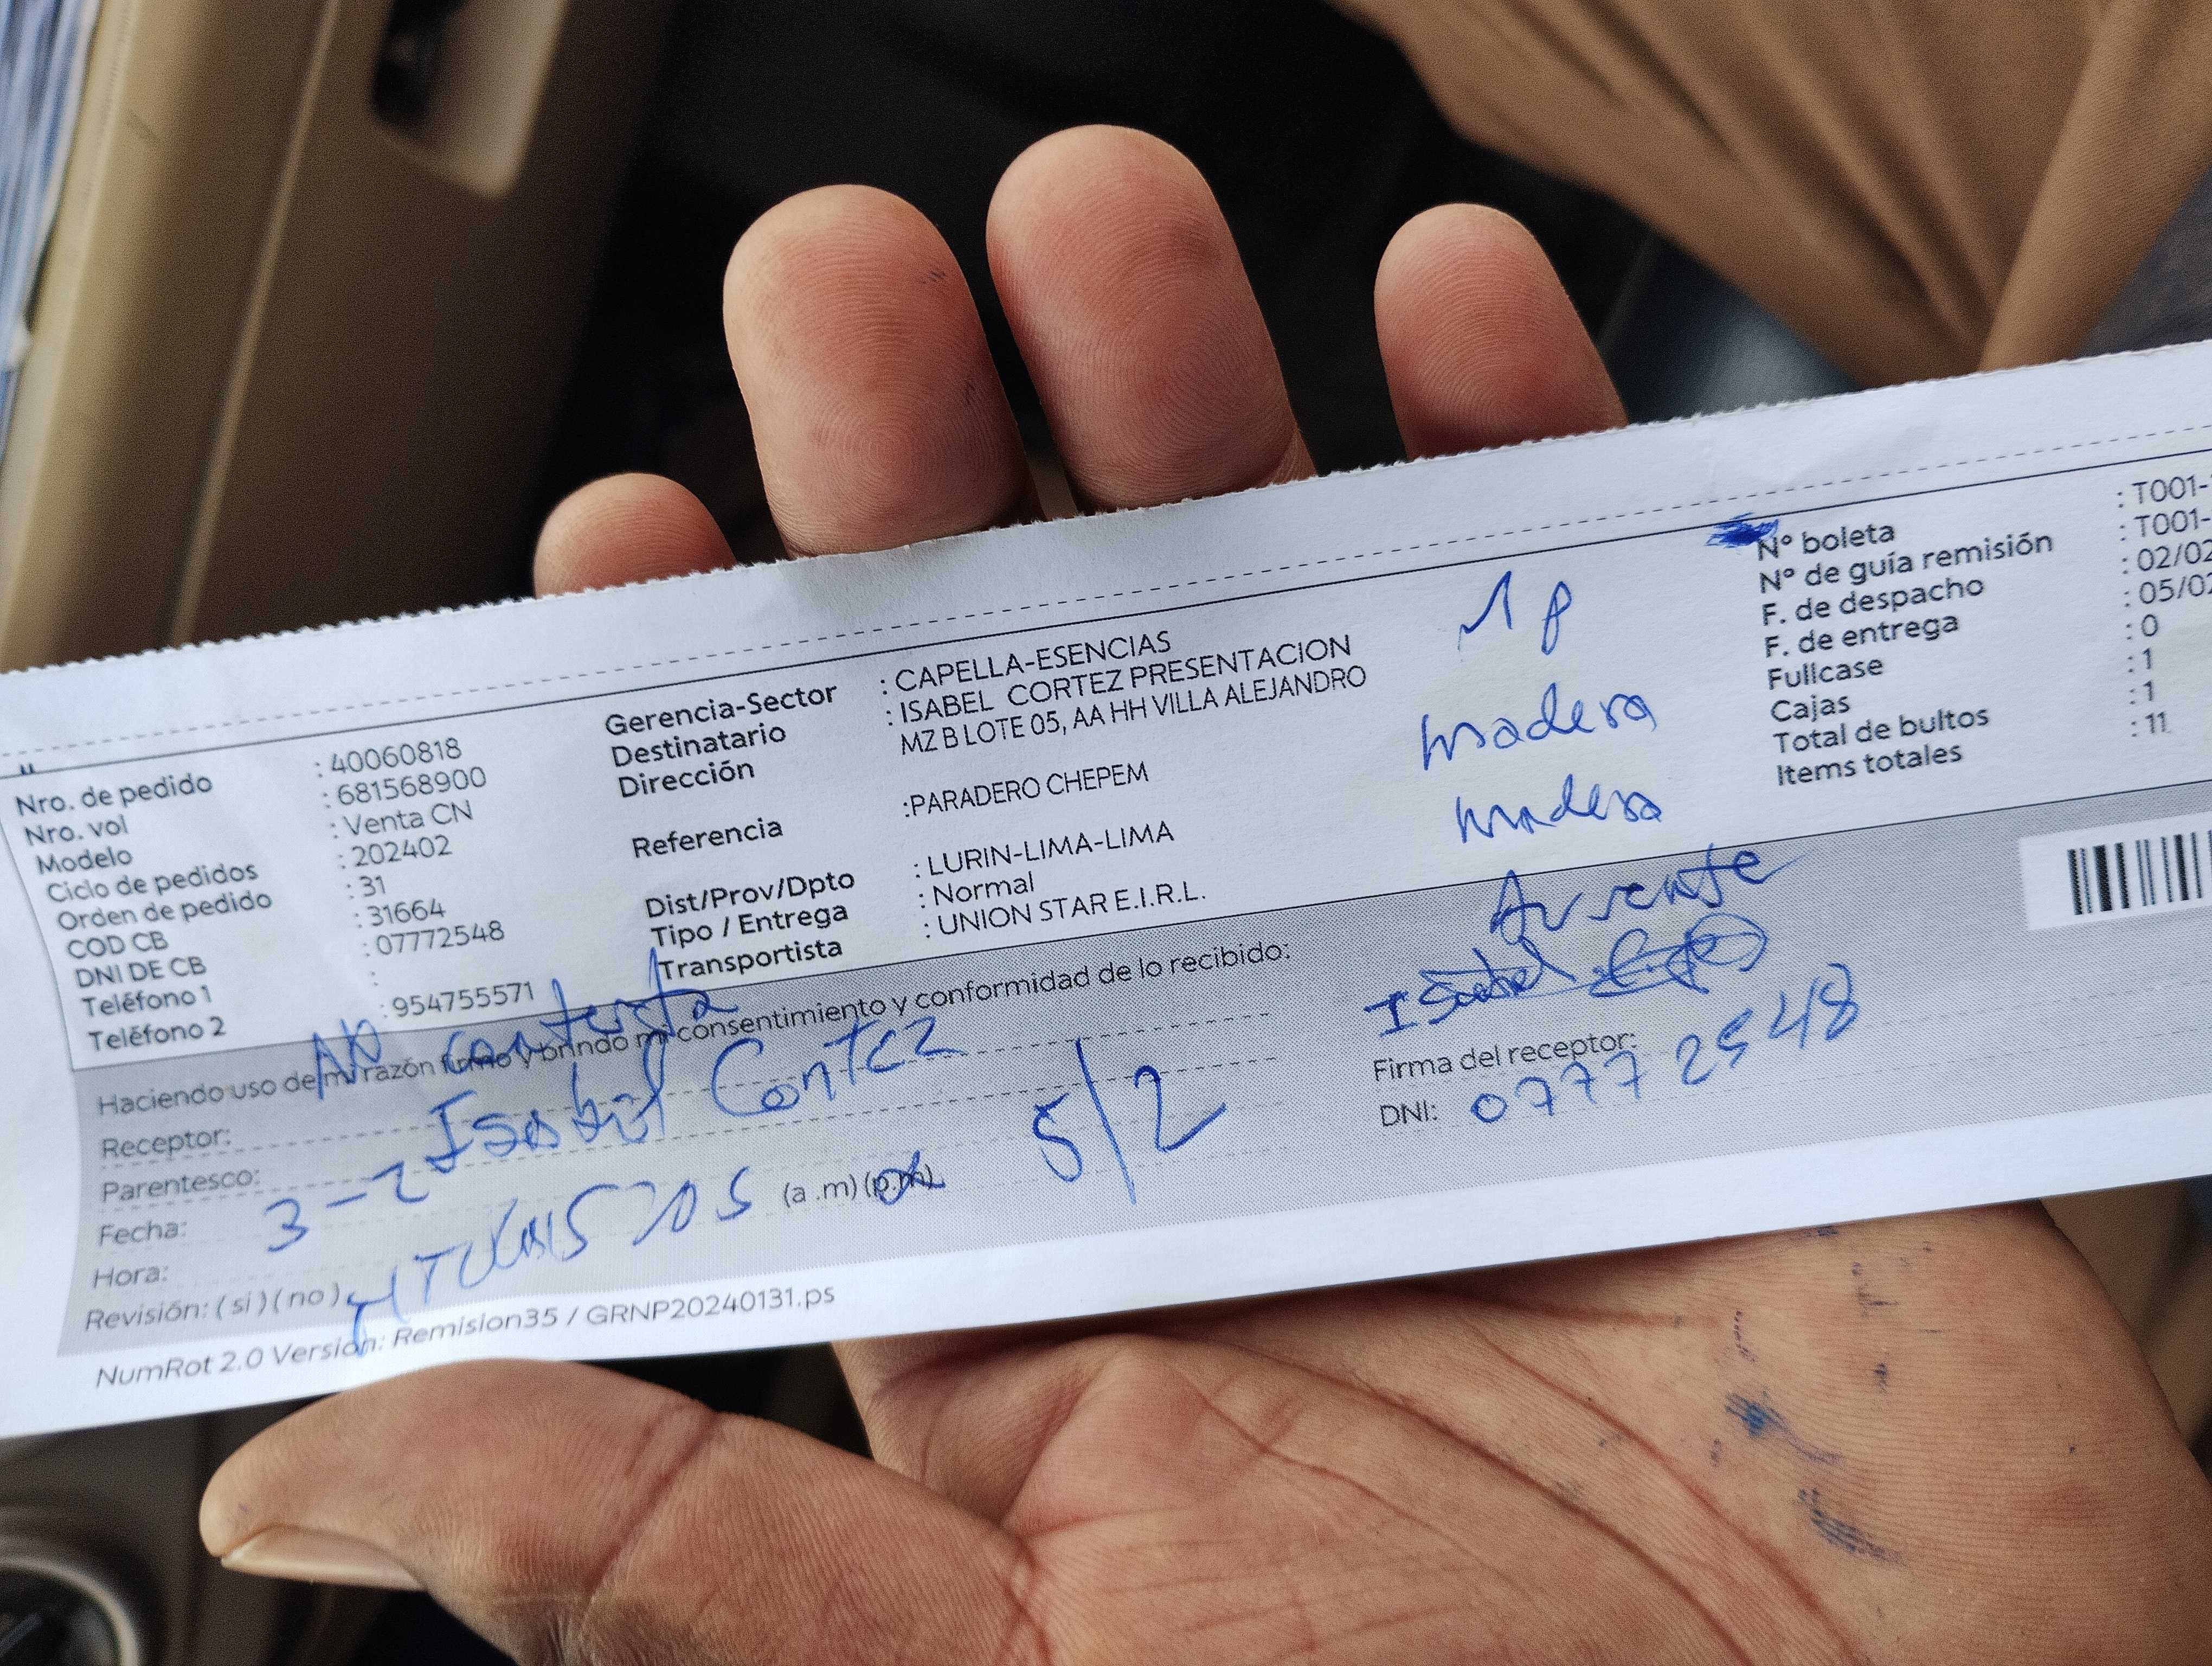 Nro. de pedido : 40060818
Nro. vol : 681568900
Modelo : Venta CN
Ciclo de pedidos : 202402
Orden de pedido : 31
COD CB : 31664
DNI DE CB : 07772548
Teléfono 1 :
Teléfono 2 : 954755571
Gerencia-Sector : CAPELLA-ESENCIAS
Destinatario : ISABEL CORTEZ PRESENTACION
Dirección MZ B LOTE 05, AA HH VILLA ALEJANDRO
Referencia :PARADERO CHEPEM
Dist/Prov/Dpto : LURIN-LIMA-LIMA
Tipo / Entrega : Normal
Transportista : UNION STAR E.I.R.L.
1 p
madera
madera
Ausente
Nº boleta : T001-
Nº de guía remisión : T001-
F. de despacho : 02/02
F. de entrega : 05/02
Fullcase : 0
Cajas : 1
Total de bultos : 1
Items totales : 11
No contesta
Haciendo uso de mi razón firmo y brindo mi consentimiento y conformidad de lo recibido:
Receptor: Isabel Cortez
Parentesco:
Fecha: 3-2 5/2
Hora: (a .m) (p.m)
Revisión: ( si ) ( no )
Isabel
Firma del receptor:
DNI: 07772548
NumRot 2.0 Version: Remision35 / GRNP20240131.ps